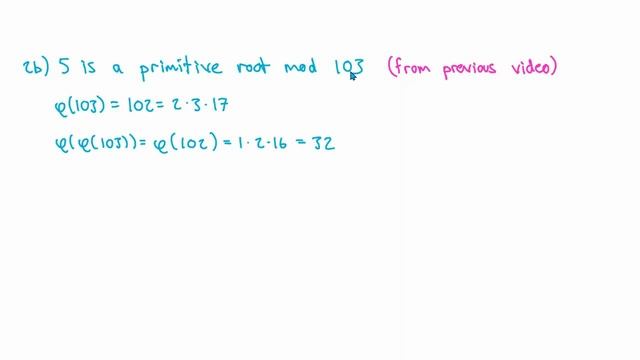 2b) 5 is a primitive root mod 103 (from previous video)
φ(103) = 102 = 2·3·17
φ(φ(103)) = φ(102) = 1·2·16 = 32